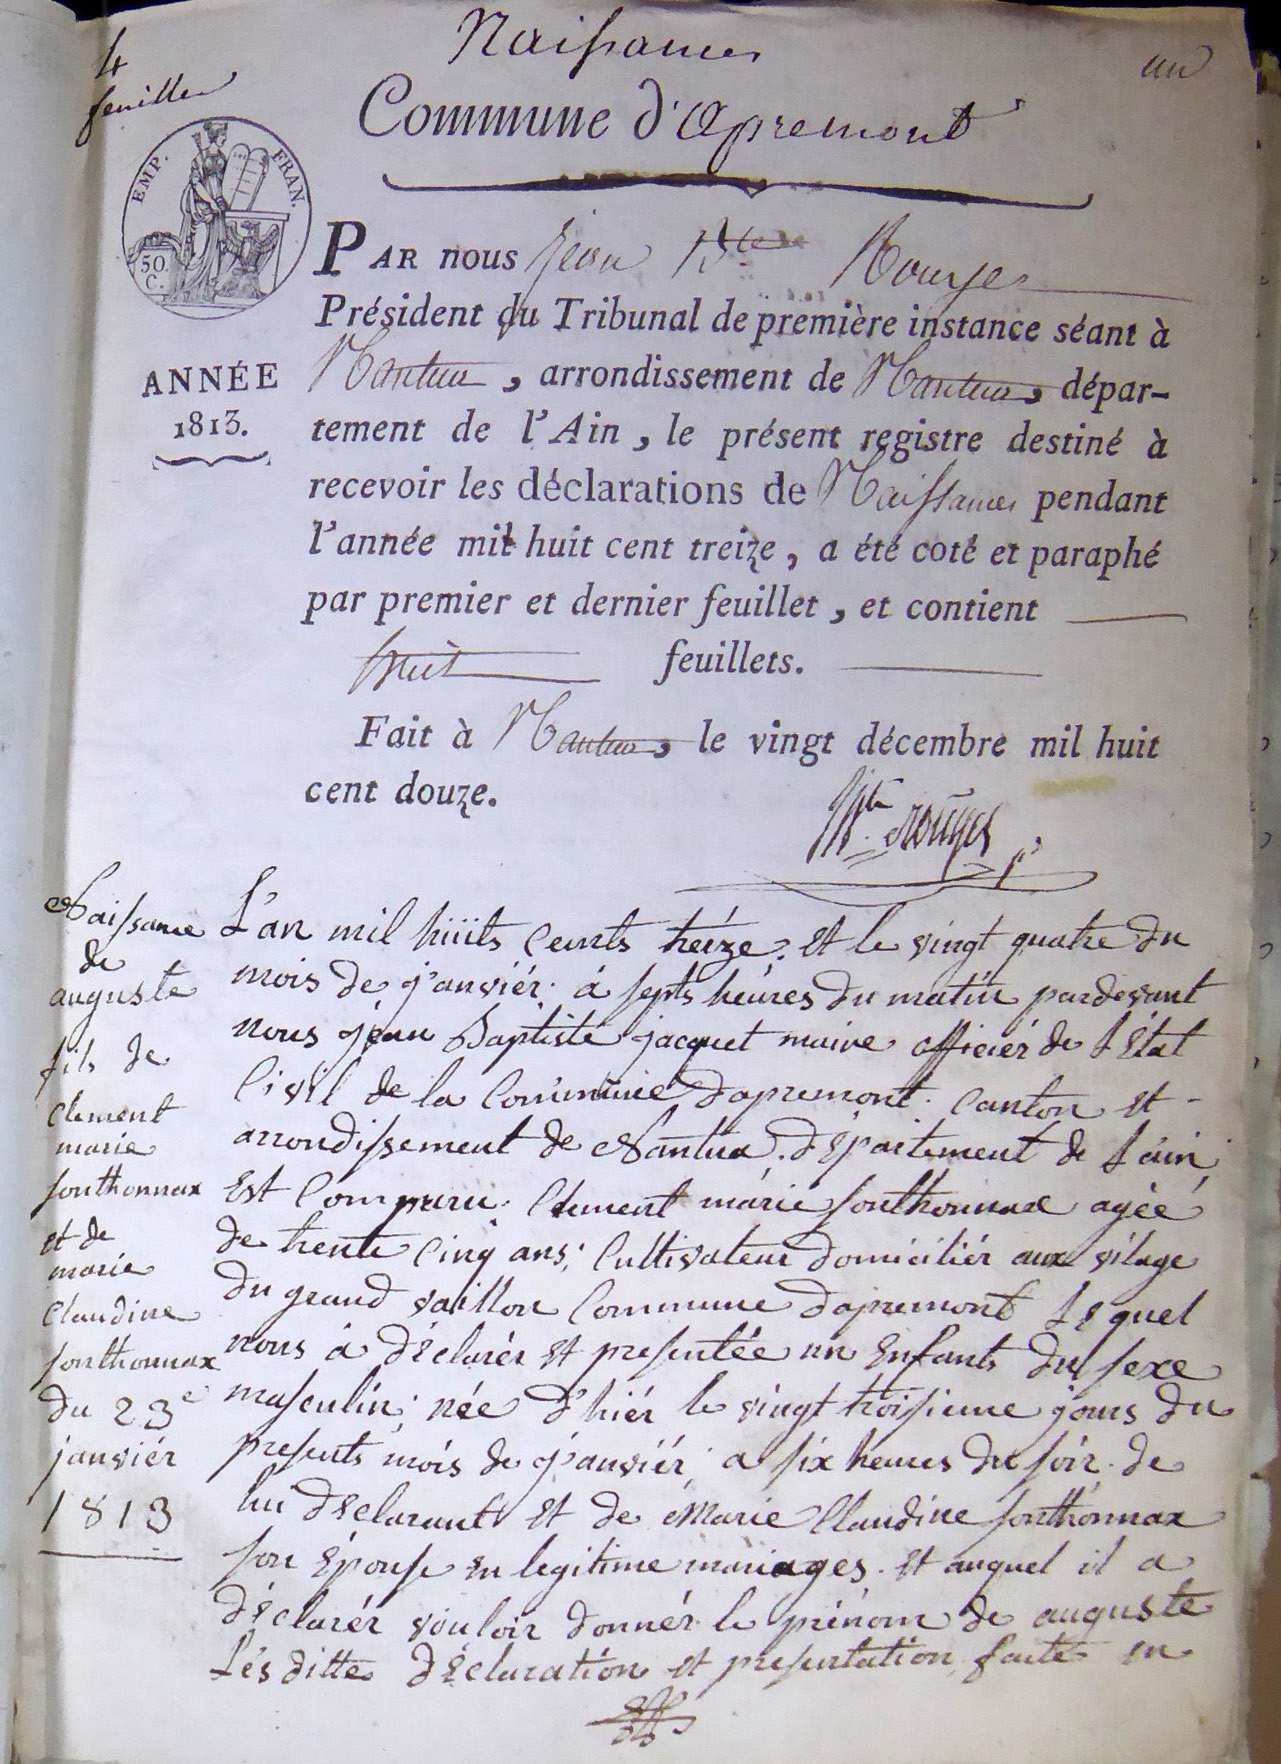 4
feuilles
Naissances
un
Commune d'Apremont
EMP. FRAN.
50 C.
ANNÉE
1813.
PAR nous Jean Bte Rouyer
Président du Tribunal de première instance séant à
Nantua, arrondissement de Nantua, dépar-
tement de l'Ain, le présent registre destiné à
recevoir les déclarations de Naissances pendant
l'année mil huit cent treize, a été coté et paraphé
par premier et dernier feuillet, et contient
huit feuillets.
Fait à Nantua, le vingt décembre mil huit
cent douze.
Naissance
de
auguste
fils de
clement
marie
sonthonnax
et de
marie
claudine
sonthonnax
du 23e
janviér
1813
L'an mil hüits Cents tréize. et le vingt quatre du
mois de j'anviér. á septs héures du matin pardevant
nous jean Baptiste jacquet maire officiér de L'Etat
Civil de la Commune dapremont. Canton et -
arrondissement de Nantua. dEpartement de L'ain
Est Comparu. Clement márie sonthonnax agéé
de trente Cinq ans; Cultivateur domiciliér aux vilage
du grand vaillon Commune dapremont Lequel
nous á déclarér et presentée un Enfants du sexe
masculin; née d'hiér le vingt troisieme jours du
presents móis de j'anviér; a six heures du sóir. de
lui déclarant et de Marie Claudine sonthónnax
son Épouse en legitime mariages. et auquel il a
déclarér vouloir donnér le prénom de auguste
Lés ditte déclaration et presentation faite en